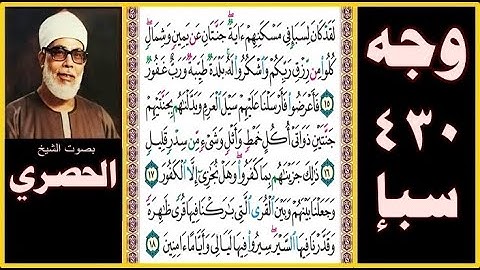 وجه
٤٣٠
سبإ
لَقَدْ كَانَ لِسَبَإٍ فِي مَسْكَنِهِمْ ءَايَةٌ جَنَّتَانِ عَن يَمِينٍ وَشِمَالٍ
كُلُوا۟ مِن رِّزْقِ رَبِّكُمْ وَٱشْكُرُوا۟ لَهُۥ بَلْدَةٌ طَيِّبَةٌ وَرَبٌّ غَفُورٌ
١٥ فَأَعْرَضُوا۟ فَأَرْسَلْنَا عَلَيْهِمْ سَيْلَ ٱلْعَرِمِ وَبَدَّلْنَٰهُم بِجَنَّتَيْهِمْ
جَنَّتَيْنِ ذَوَاتَىْ أُكُلٍ خَمْطٍ وَأَثْلٍ وَشَىْءٍ مِّن سِدْرٍ قَلِيلٍ
١٦ ذَٰلِكَ جَزَيْنَٰهُم بِمَا كَفَرُوا۟ وَهَلْ نُجَٰزِىٓ إِلَّا ٱلْكَفُورَ ١٧
وَجَعَلْنَا بَيْنَهُمْ وَبَيْنَ ٱلْقُرَى ٱلَّتِى بَٰرَكْنَا فِيهَا قُرًى ظَٰهِرَةً
وَقَدَّرْنَا فِيهَا ٱلسَّيْرَ سِيرُوا۟ فِيهَا لَيَالِىَ وَأَيَّامًا ءَامِنِينَ ١٨
بصوت الشيخ
الحصري